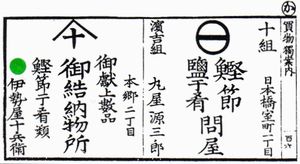 か
買物獨案内
十組
日本橋室町二丁目
鰹節
鹽干肴
問屋
濱吉組
九星源三郎
本郷二丁目
御獻上数品
十
御結納物所
鰹節干肴類
伊勢屋十兵衛